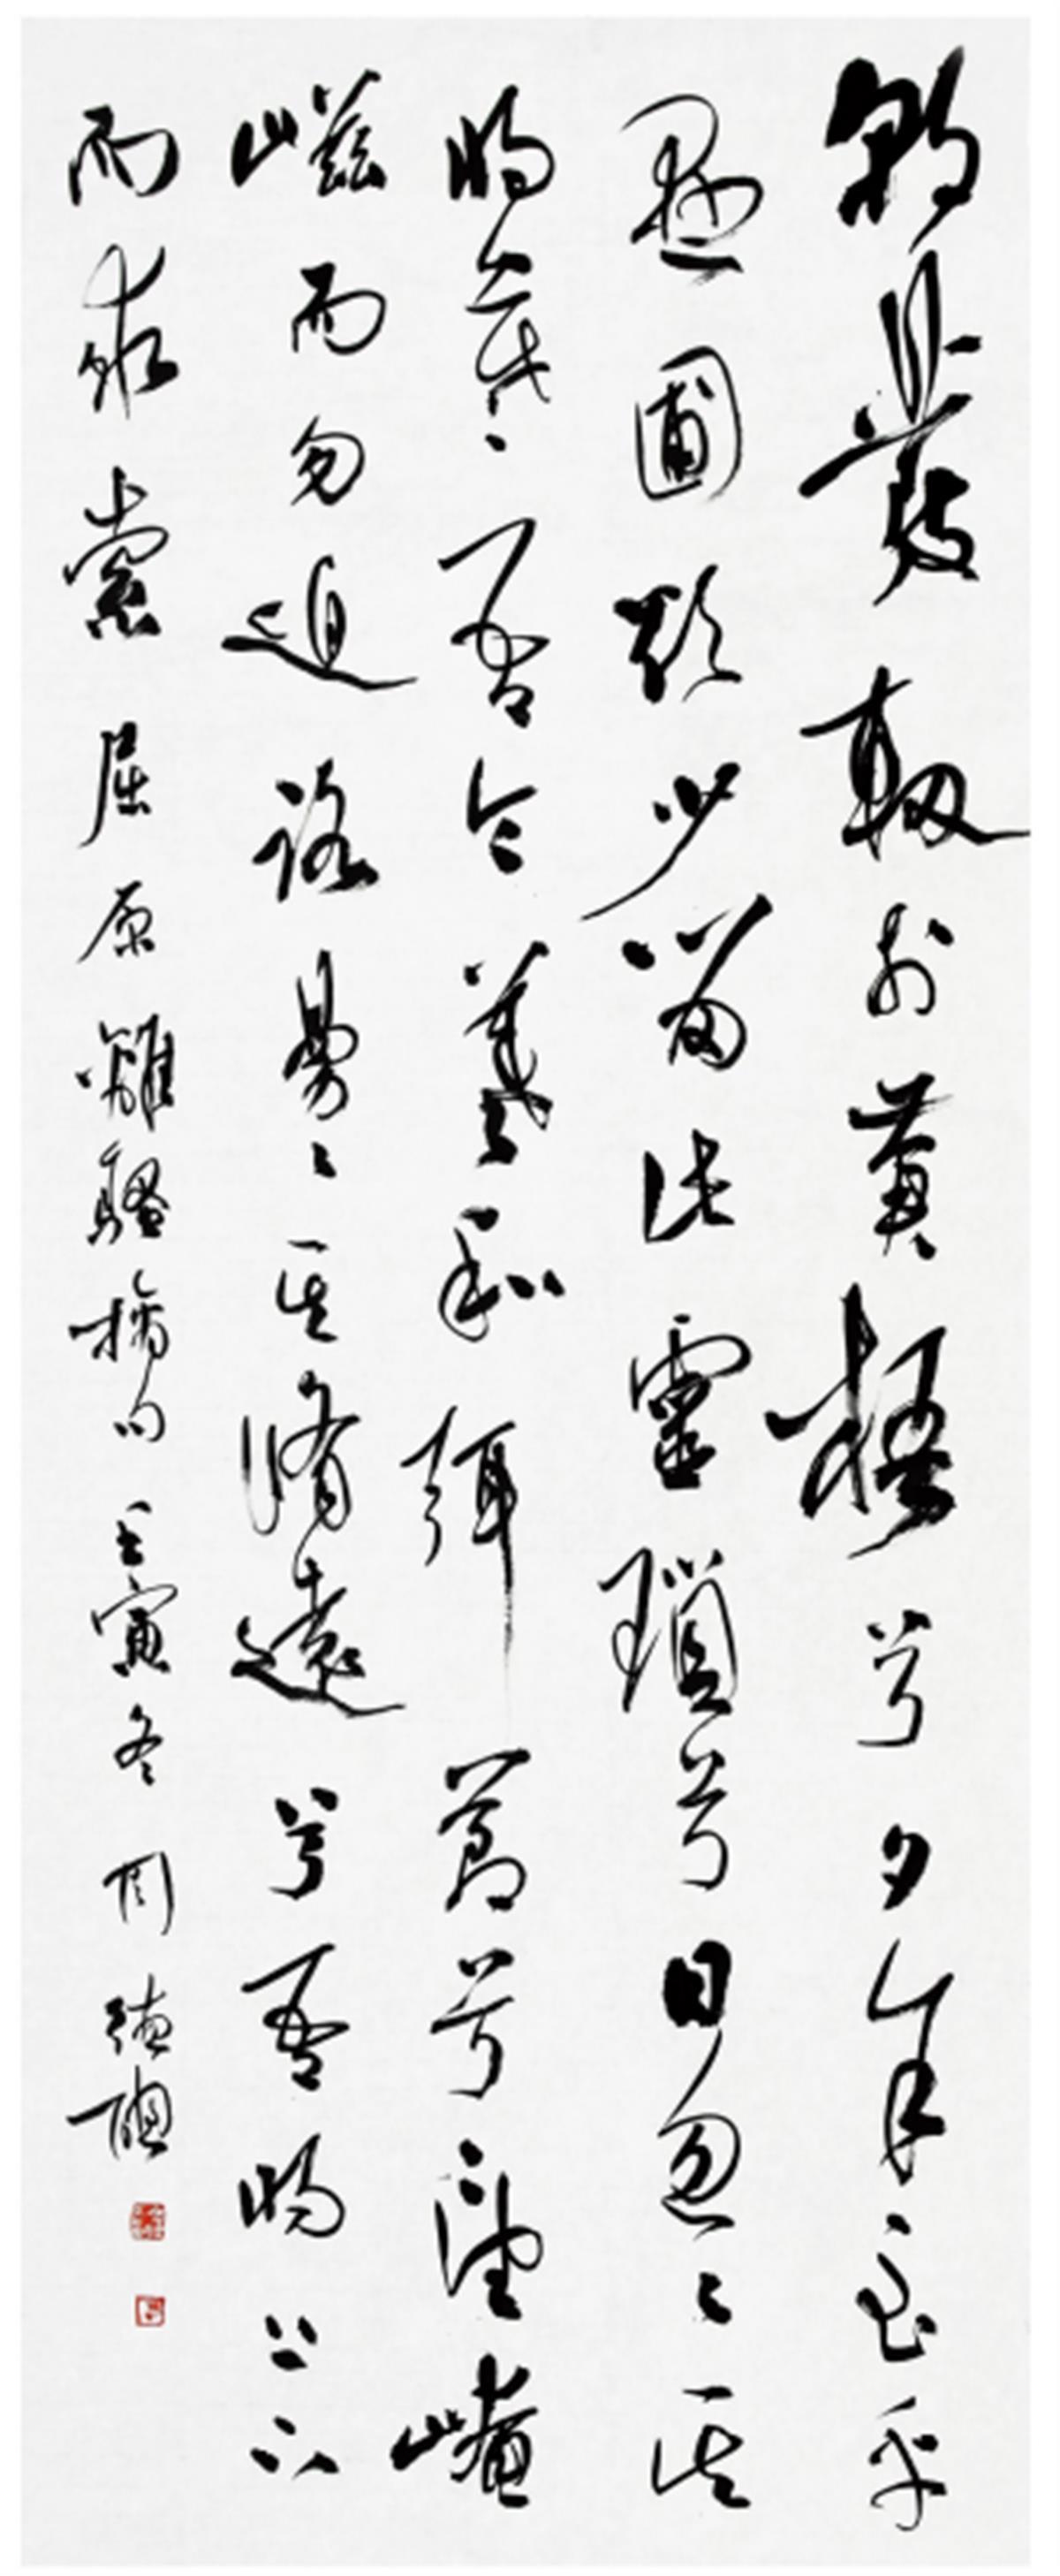 朝發軔於蒼梧兮夕余至乎
懸圃欲少留此靈瑣兮日忽〻其
將暮吾令羲和弭節兮望崦
嵫而勿迫路曼〻其脩遠兮吾將上下
而求索 屈原離騷摘句 壬寅冬 周德聰